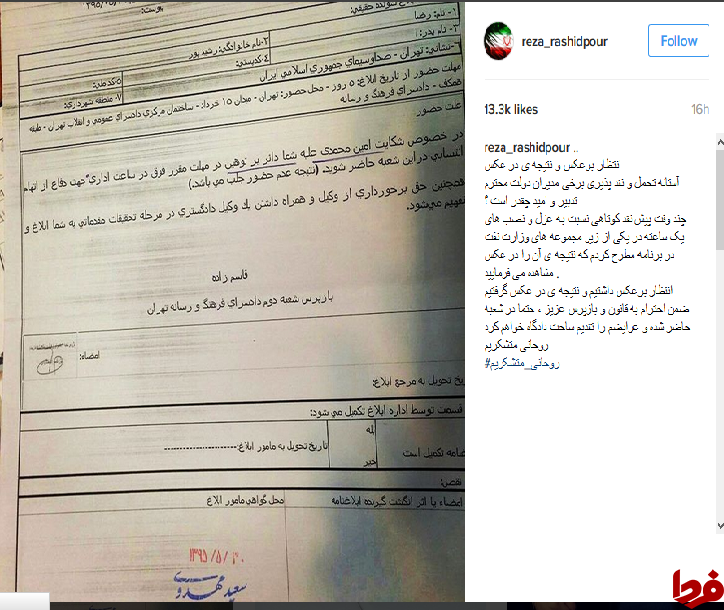 ۱- نام: رضا
۲-نام خانوادگی: رشید پور
۳- نام پدر:
۴-کدپستی:
۵-کدملی:
۶-نشانی: تهران - صداوسیمای جمهوری اسلامی ایران
۷- منطقه شهرداری:
مهلت حضور از تاریخ ابلاغ: ۵ روز - محل حضور: تهران - میدان ۱۵ خرداد - ساختمان مرکزی دادسرای عمومی و انقلاب تهران - طبقه
همکف - دادسرای فرهنگ و رسانه
علت حضور
در خصوص شکایت امین محمدی علیه شما دائر بر توهین در مهلت مقرر فوق در ساعت اداری جهت دفاع از اتهام
انتسابی دراین شعبه حاضر شوید. (نتیجه عدم حضور جلب می باشد.)
همچنین حق برخورداری از وکیل و همراه داشتن یک وکیل دادگستری در مرحله تحقیقات مقدماتی به شما ابلاغ و
تفهیم می‌شود.
قاسم زاده
بازپرس شعبه دوم دادسرای فرهنگ و رسانه تهران
امضاء:
تاریخ تحویل به مرجع ابلاغ:
قسمت توسط اداره ابلاغ تکمیل می شود:
بله
خیر
تاریخ تحویل به مامور ابلاغ:
تکمیل است
نقص:
امضاء یا اثر انگشت گیرنده ابلاغنامه
محل گواهی مامور ابلاغ
۱۳۹۵/۵/۲۰
reza_rashidpour
Follow
13.3k likes
16h
reza_rashidpour ..
نتظار برعکس و نتیجه ی در عکس
آستانه تحمل و نقد پذیری برخی مدیران دولت محترم
تدبیر و امید چقدر است ؟
چند وقت پیش نقد کوتاهی نسبت به عزل و نصب های
یک ساعته در یکی از زیر مجموعه های وزارت نفت
در برنامه مطرح کردم که نتیجه ی آن را در عکس
مشاهده می فرمایید .
انتظار برعکس داشتیم و نتیجه ی در عکس گرفتیم
ضمن احترام به قانون و بازپرس عزیز ، حتما در شعبه
حاضر شده و عرایضم را تقدیم ساحت دادگاه خواهم کرد
روحانی متشکریم
#روحانی_متشکریم
فردا